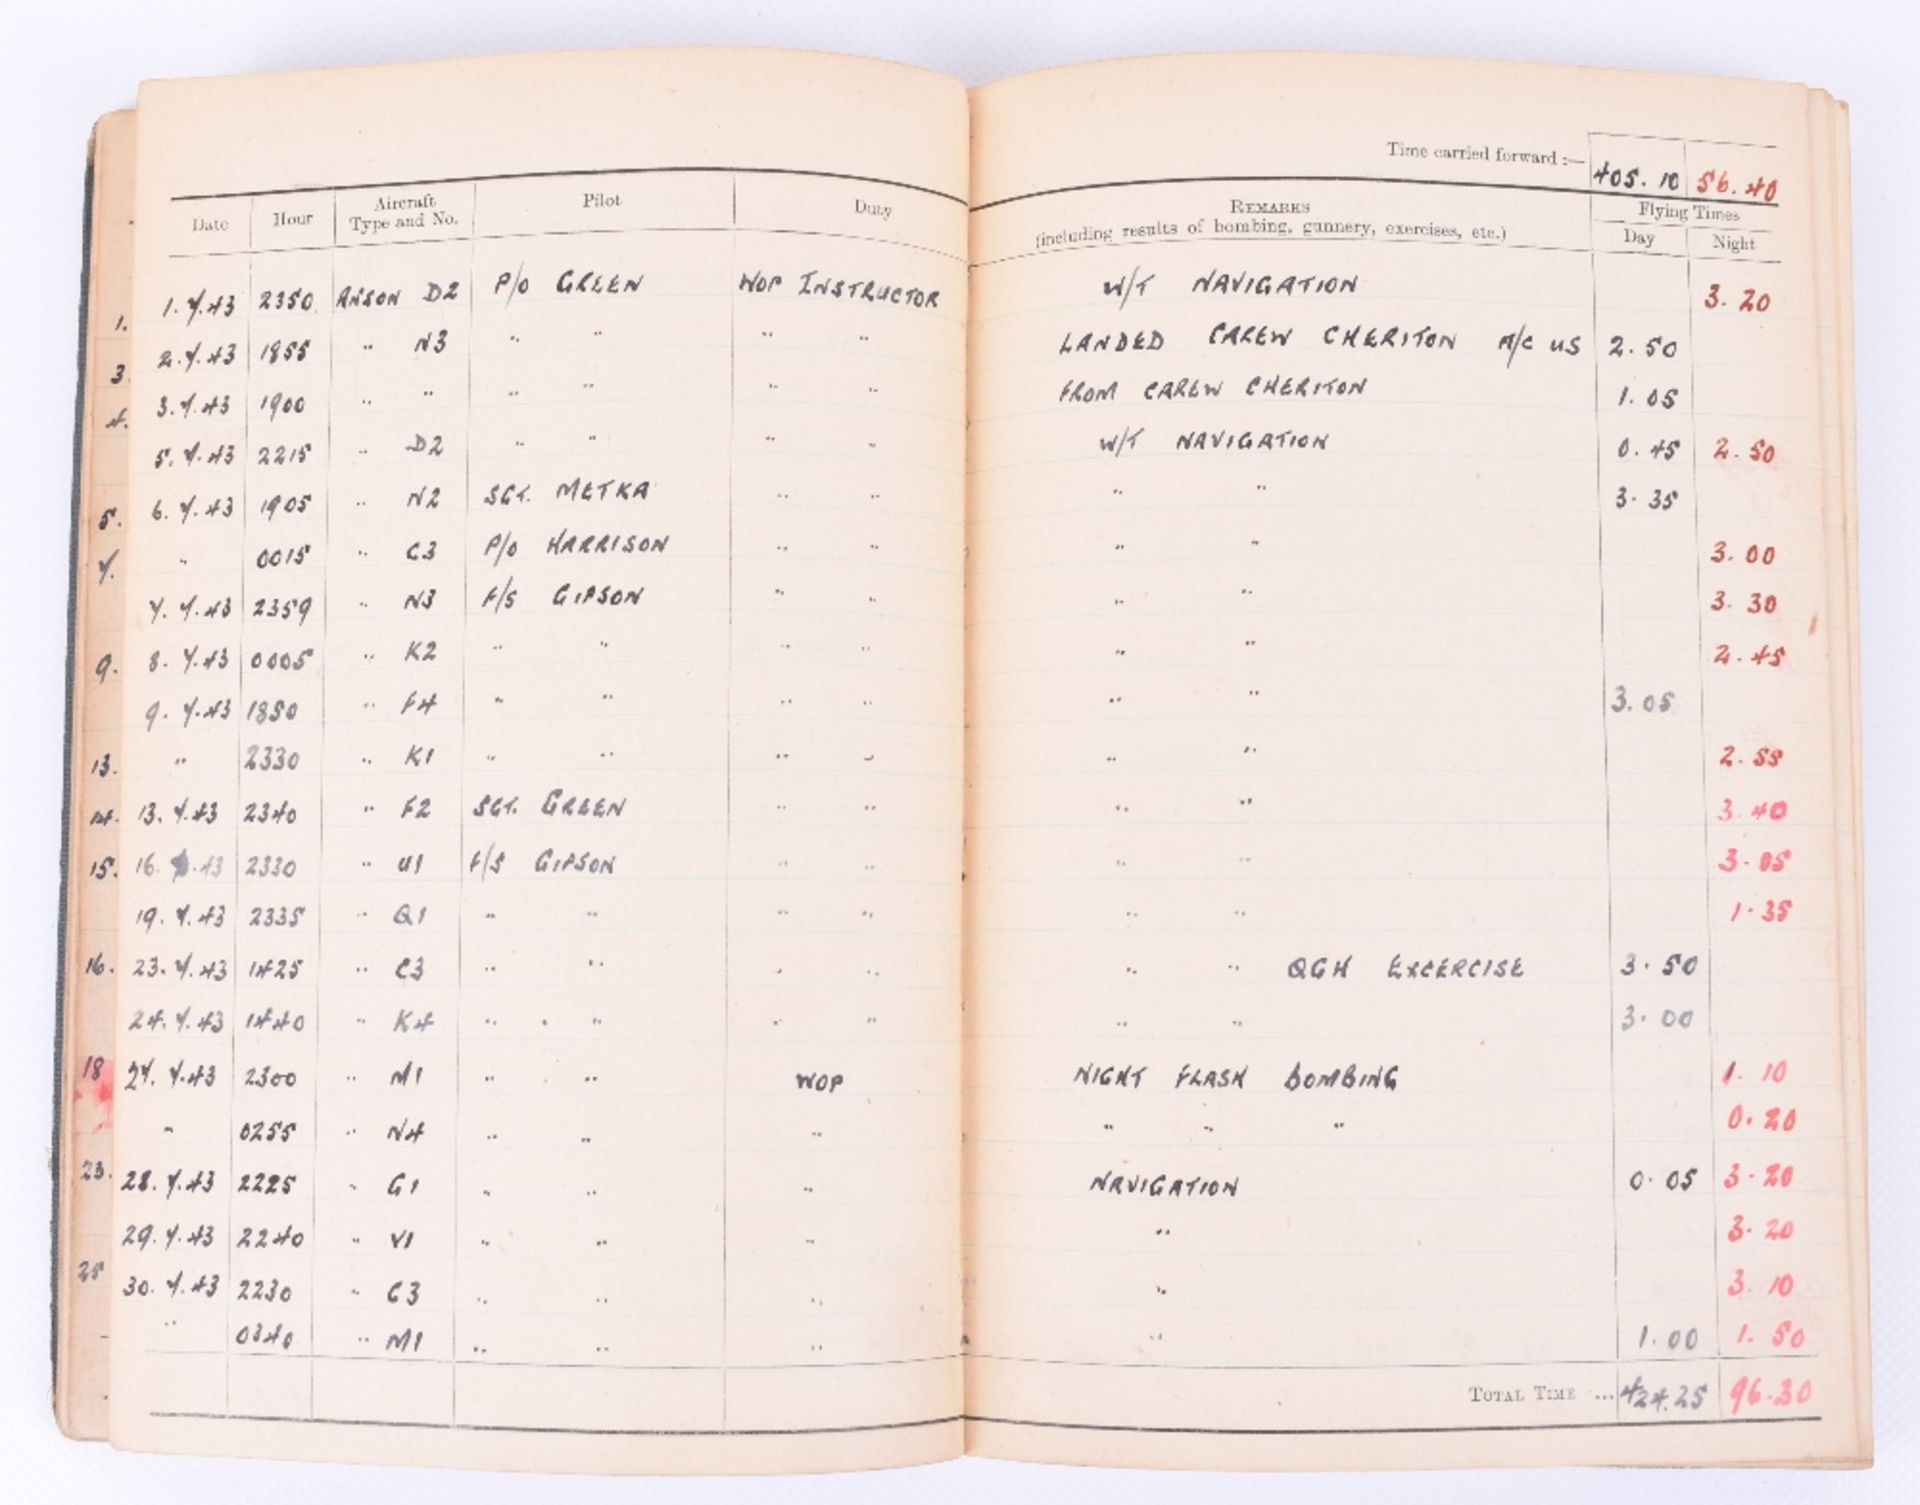 Time carried forward :— 405.10 56.40
Date Hour Aircraft Type and No. Pilot Duty REMARKS (including results of bombing, gunnery, exercises, etc.) Flying Times Day Night
1. 1.7.43 2350 ANSON D2 P/O GREEN WOP INSTRUCTOR W/T NAVIGATION 3.20
2.7.43 1855 " N3 " " " " LANDED CAREW CHERITON A/C US 2.50
3. 3.7.43 1900 " " " " " " FROM CAREW CHERITON 1.05
4. 5.7.43 2215 " D2 " " " " W/T NAVIGATION 0.45 2.50
5. 6.7.43 1905 " N2 SGT. METKA " " " " 3.35
7. " 0015 " C3 P/O HARRISON " " " " 3.00
7.7.43 2359 " N3 F/S GIPSON " " " " 3.30
9. 8.7.43 0005 " K2 " " " " " " 2.45
9.7.43 1850 " F4 " " " " " " 3.05
13. " 2330 " K1 " " " " " " 2.55
14. 13.7.43 2340 " F2 SGT. GREEN " " " " 3.40
15. 16.7.43 2330 " U1 F/S GIPSON " " " " 3.05
19.7.43 2335 " Q1 " " " " " " 1.35
16. 23.7.43 1425 " C3 " " " " " " QGH EXCERCISE 3.50
24.7.43 1440 " K4 " " " " " " 3.00
18 27.7.43 2300 " M1 " " WOP NIGHT FLASH BOMBING 1.10
" 0255 " N4 " " " " " " 0.20
23. 28.7.43 2225 " G1 " " " NAVIGATION 0.05 3.20
29.7.43 2240 " V1 " " " " 3.20
25 30.7.43 2230 " C3 " " " " 3.10
" 0340 " M1 " " " " 1.00 1.50
TOTAL TIME ... 424.25 96.30